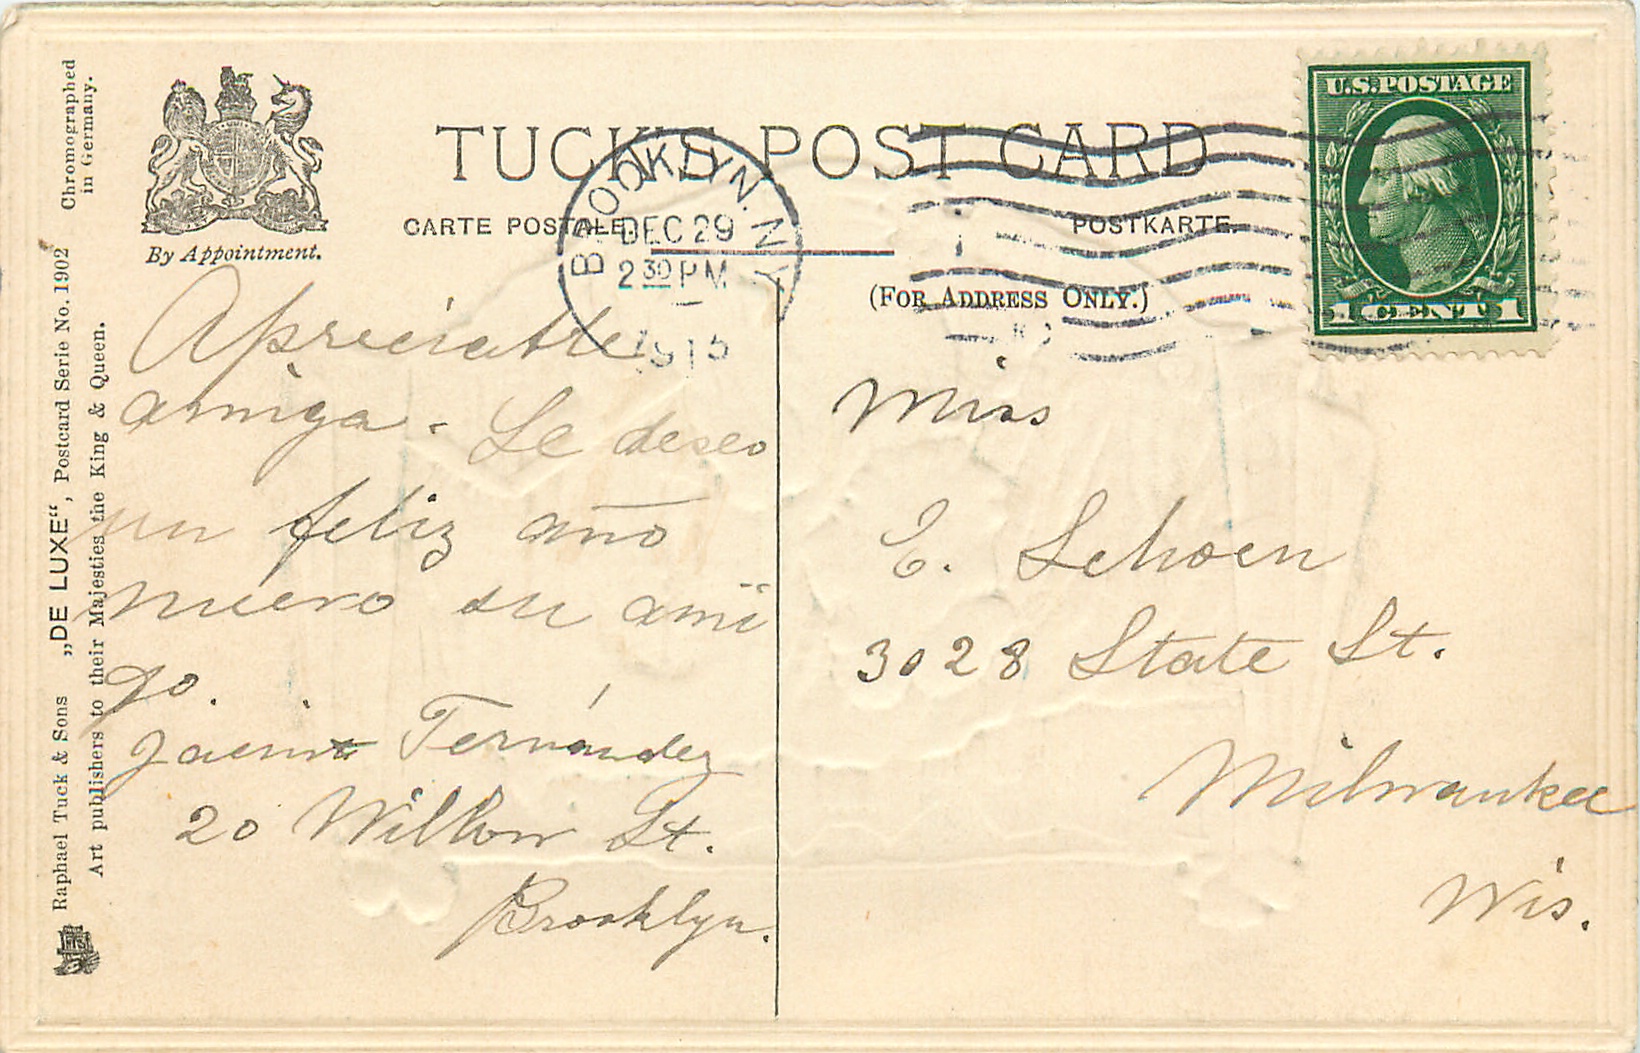 Chromographed
in Germany.
Raphael Tuck & Sons „DE LUXE“, Postcard Serie No. 1902
Art publishers to their Majesties the King & Queen.
By Appointment.
TUCK'S POST CARD
CARTE POSTALE.
POSTKARTE.
(FOR ADDRESS ONLY.)
BROOKLYN. N.Y.
DEC 29
2 30 PM
1915
U.S. POSTAGE
1 CENT 1
Apreciable
amiga. Le deseo
un feliz año
nuevo su ami
go.
Fernández
20 Willow St.
Brooklyn.
Miss
E. Schoen
3028 State St.
Milwaukee
Wis.